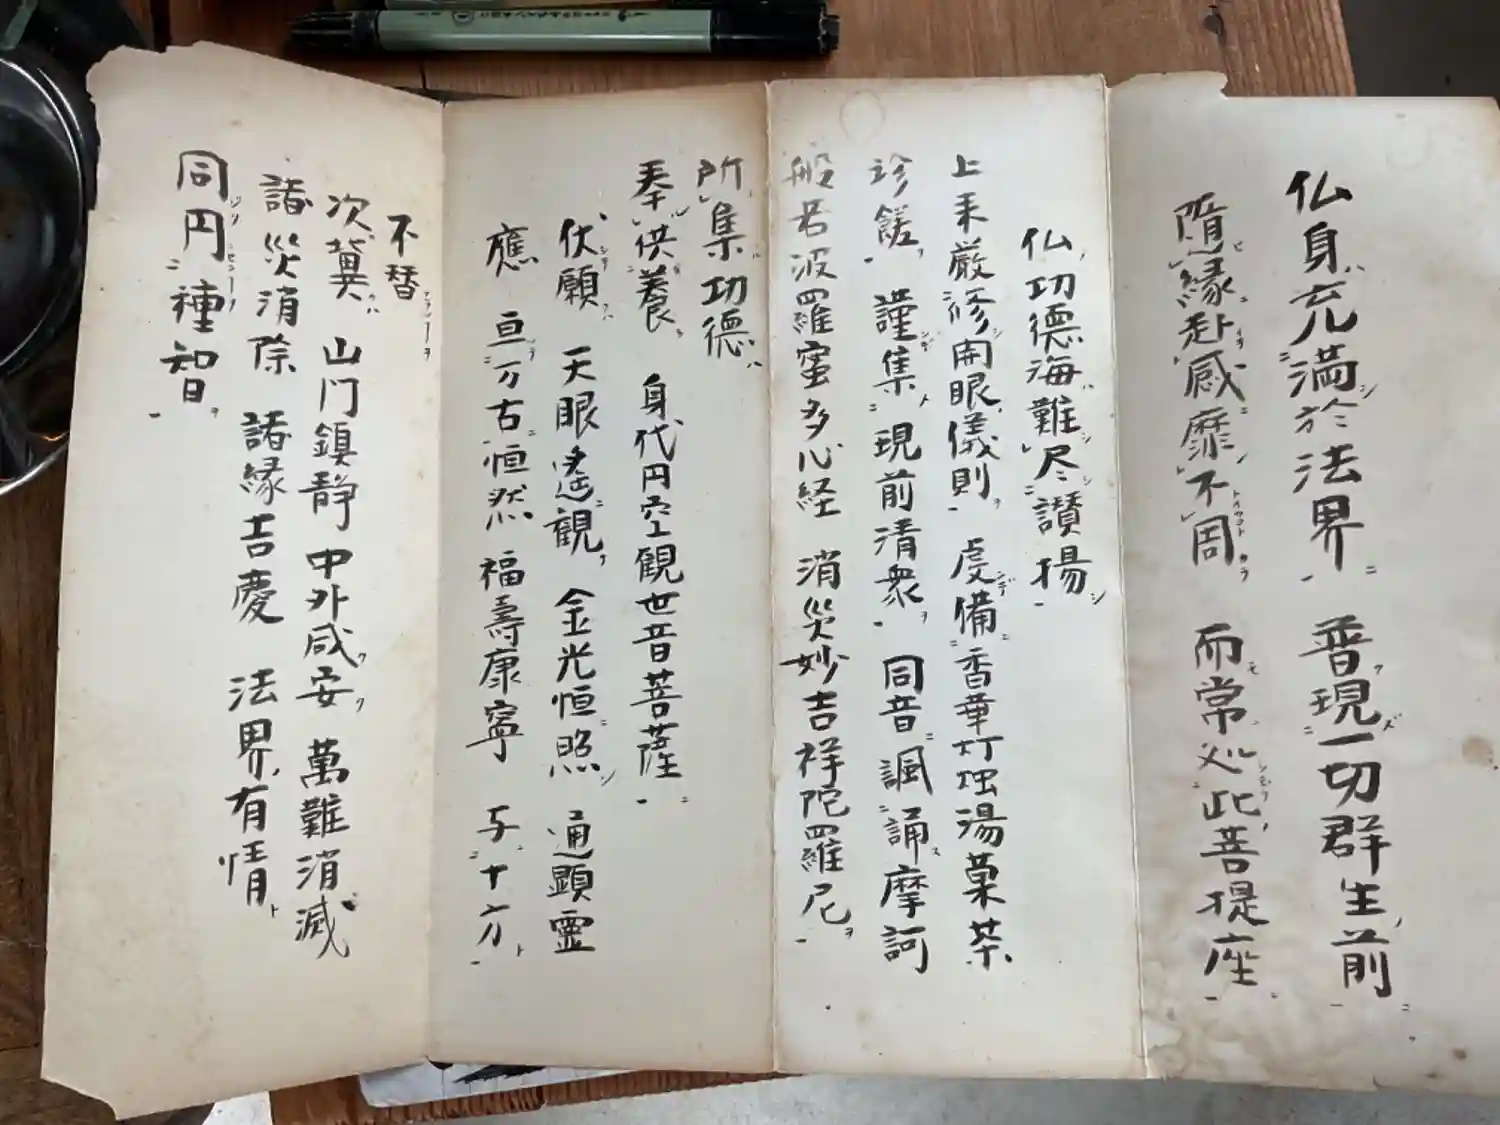 仏身充満於法界 普現一切群生前
隨縁赴感靡不周 而常処此菩提座
仏功徳海難尽讃揚
上来厳修開眼儀則 虔備香華灯燭湯菓茶
珍饈 謹集現前清衆 同音諷誦摩訶
般若波羅蜜多心経 消災妙吉祥陀羅尼
所集功徳
奉供養 身代円空観世音菩薩
伏願 天眼遙観 金光恒照 通顕霊
應 亘万古恒然 福壽康寧 与十方
不替
次冀 山門鎮静 中外咸安 萬難消滅
諸災消除 諸縁吉慶 法界有情
同円種智